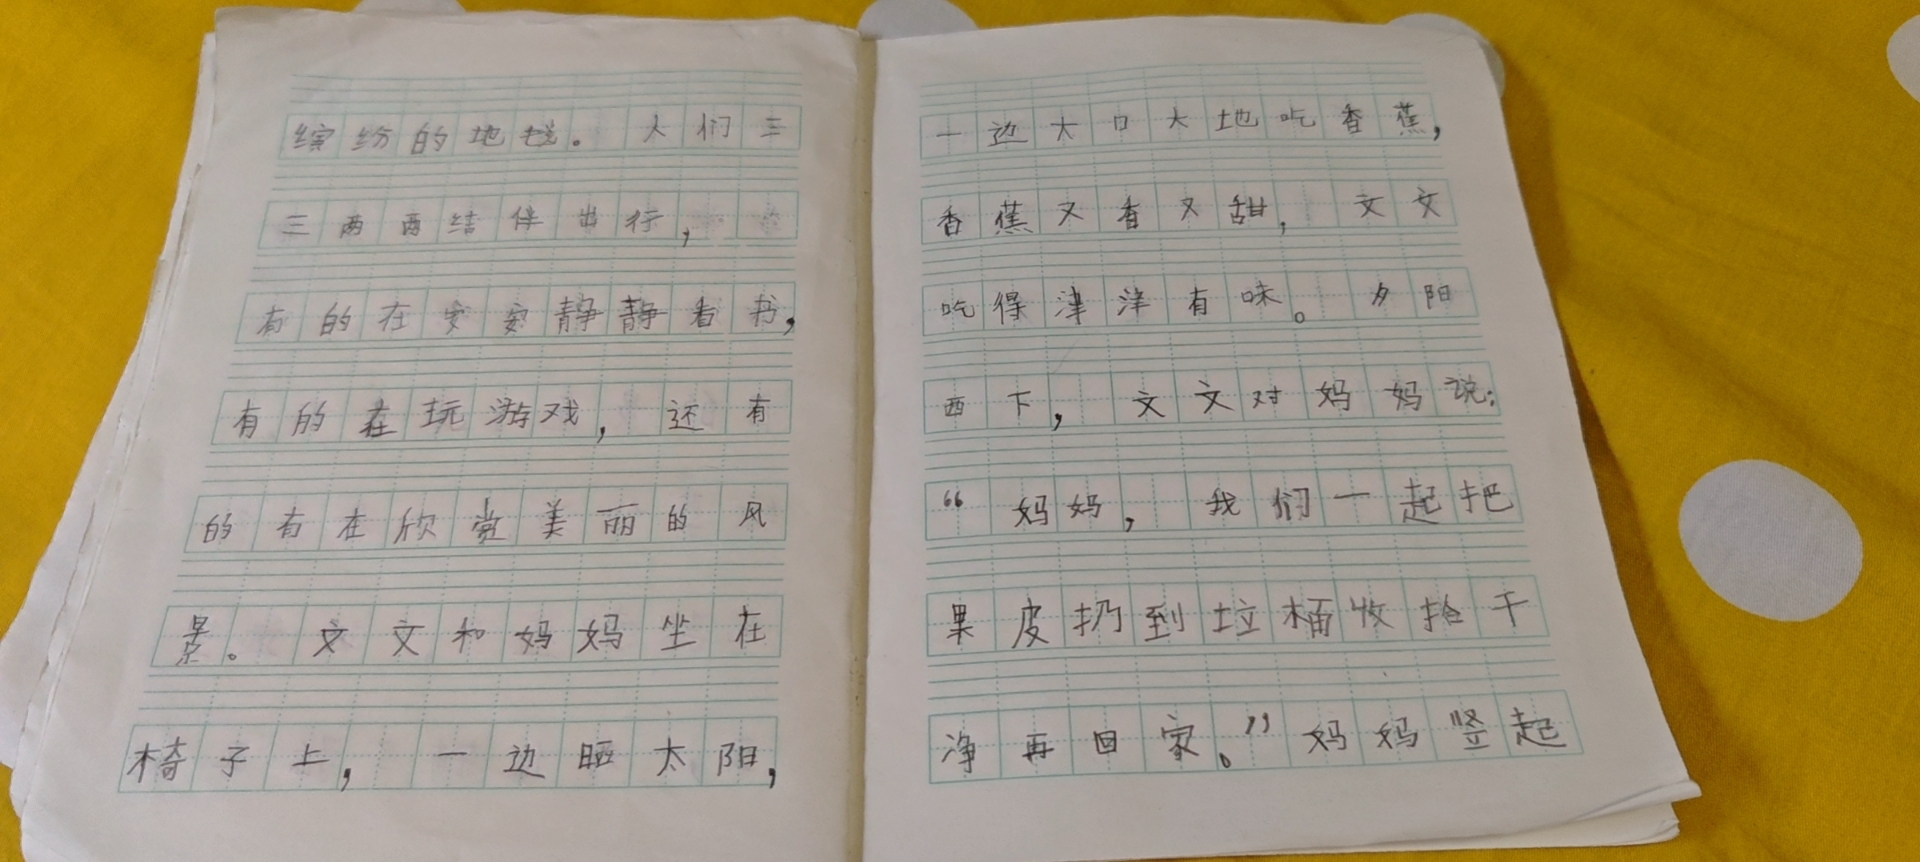 缤纷的地毯。 人们三
三两两结伴出行,
有的在安安静静看书,
有的在玩游戏, 还有
的有在欣赏美丽的风
景。 文文和妈妈坐在
椅子上, 一边晒太阳,
一边大口大地吃香蕉,
香蕉又香又甜, 文文
吃得津津有味。 夕阳
西下, 文文对妈妈说:
“ 妈妈, 我们一起把
果皮扔到垃桶收拾干
净再回家。”妈妈竖起